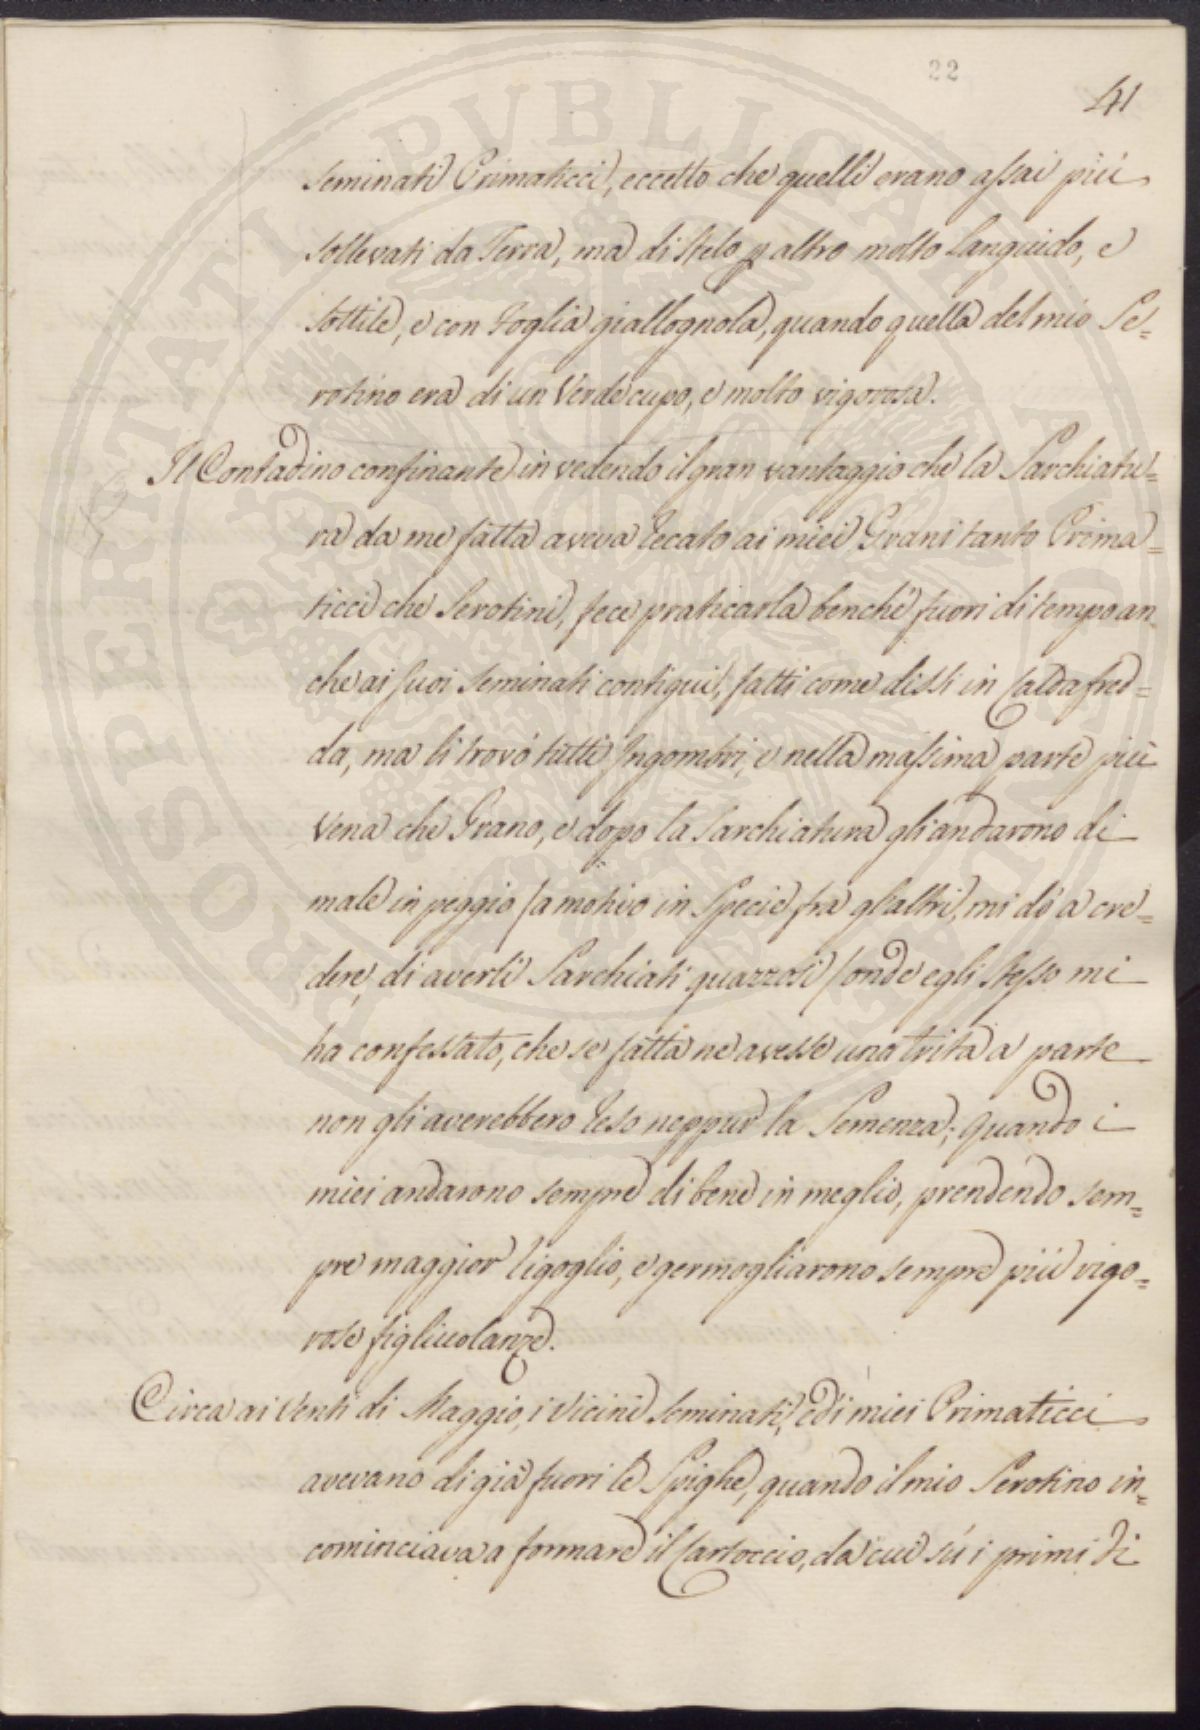 22
41
seminati Primaticci, eccetto che quelli erano assai più
sollevati da Terra, ma di stelo p altro molto languido, e
sottile, e con Foglia giallognola, quando quella del mio Se=
rotino era di un Verde cupo, e molto vigorosa.
Il Contadino confinante in vedendo il gran vantaggio che la Sarchiatu=
ra da me fatta aveva recato ai miei Grani tanto Prima=
ticci che Serotini, fece praticarla benchè fuori di tempo an
che ai suoi seminati contigui, fatti come dissi in Calda fred=
da, ma li trovò tutti Ingombri, e nella massima parte più
Vena che Grano, e dopo la Sarchiatura gli andarono di
male in peggio /a motivo in Specie frà gl'altri, mi dò a cre=
dere, di averli Sarchiati guazzosi/ onde egli stesso mi
ha confessato, che se fatta ne avesse una trita a parte
non gli averebbero reso neppur la Semenza; quando i
miei andarono sempre di bene in meglio, prendendo sem=
pre maggior rigoglio, e germogliarono sempre più vigo=
rose figliuolanze.
Circa ai Venti di Maggio, i vicini seminati, ed i miei Primaticci
avevano di già fuori le Spighe, quando il mio Serotino in=
cominciava a formare il Cartoccio, da cui sù i primi di
PROSPERITATI PUBLICAE AUGENDAE